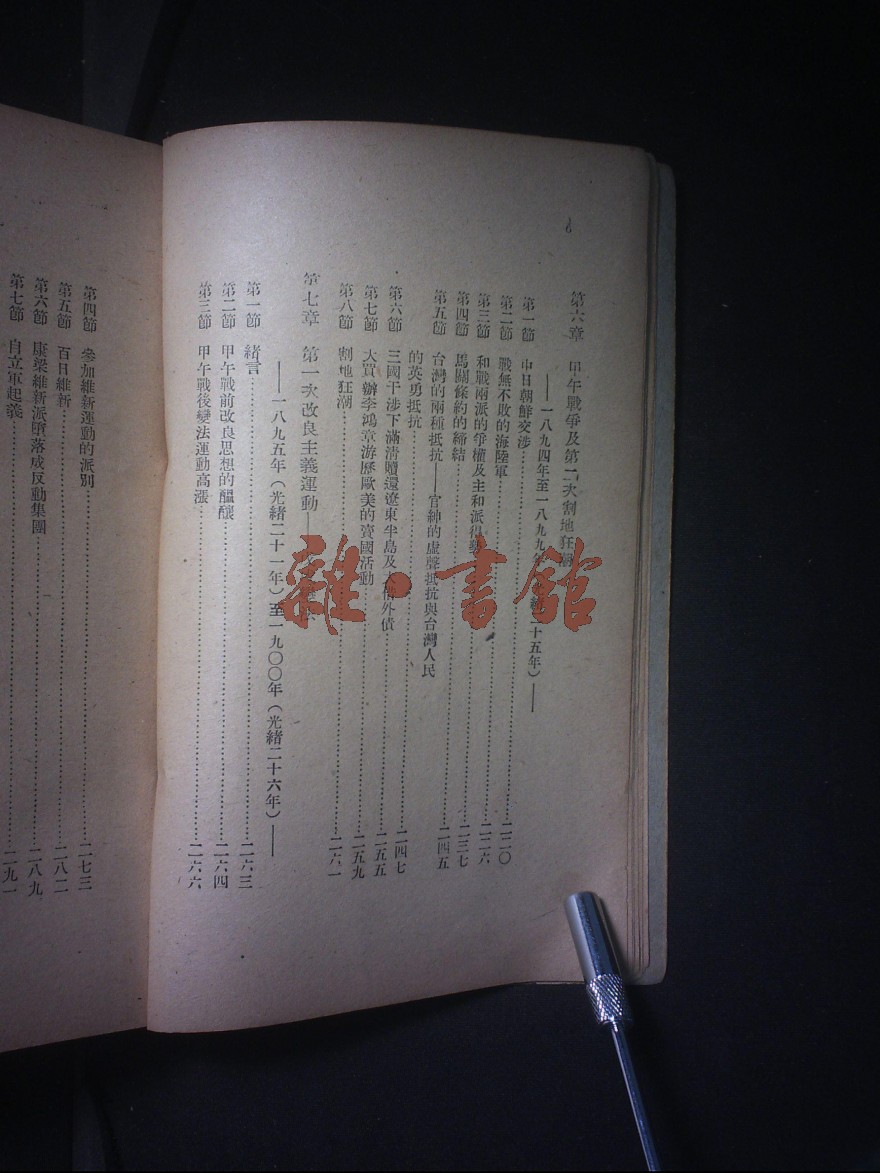 6
第六章 甲午戰爭及第二次割地狂潮
——一八九四年至一八九九年 十五年)——
第一節 中日朝鮮交涉
第二節 戰無不敗的海陸軍 二二〇
第三節 和戰兩派的爭權及主和派得 二二六
第四節 馬關條約的締結 二三七
第五節 台灣的兩種抵抗——官紳的虛聲抵抗與台灣人民
的英勇抵抗 二四五
第六節 三國干涉下滿清贖還遼東半島及大借外債 二四七
第七節 大買辦李鴻章游歷歐美的賣國活動 二五五
第八節 割地狂潮 二五九
第七章 第一次改良主義運動——
——一八九五年(光緒二十一年)至一九〇〇年(光緒二十六年)——
第一節 緒言 二六三
第二節 甲午戰前改良思想的醞釀 二六四
第三節 甲午戰後變法運動高漲 二六六
第四節 參加維新運動的派別 二七三
第五節 百日維新 二八二
第六節 康梁維新派墮落成反動集團 二八九
第七節 自立軍起義 二九一
雜·書館